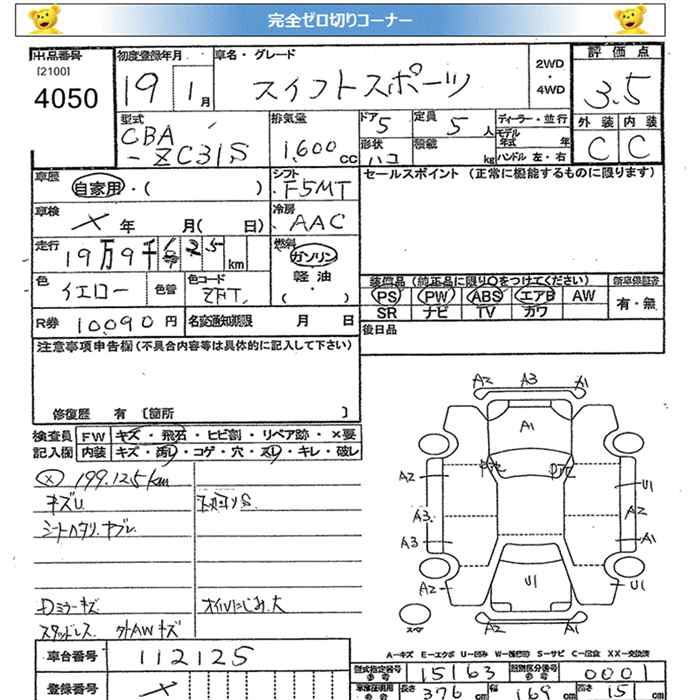 完全ゼロ切りコーナー
出品番号 初度登録年月 車名・グレード 2WD・4WD 評価点
[2100]
4050 19 1月 スイフトスポーツ 3.5
型式 排気量 ドア 5 定員 5人 ディーラー・並行 外装 内装
CBA-ZC31S 1,600cc 形状 ハコ 積載 kg モデル年式 年 C C
ハンドル 左・右
車歴 自家用・( ) シフト F5MT セールスポイント (正常に機能するものに限ります)
車検 × 年 月( 日) 冷房 AAC
走行 19万9千 km 燃料 ガソリン 軽油・( )
色 イエロー 色替 色コード ZFT 装備品 (純正品に限り○をつけてください) 新車保証書
PS PW ABS エアB AW 有・無
SR ナビ TV カワ
R券 10,090円 名変通知期限 月 日 後日品
注意事項申告欄(不具合内容等は具体的に記入して下さい)
修復歴 有 [箇所 ]
検査員記入欄 FW キズ・飛石・ヒビ割・リペア跡・×要
内装 キズ・汚レ・コゲ・穴・スレ・キレ・破レ
× 199.125km
キズU
シートヘタリ・ヤブレ
Dミラーキズ オイルにじみ大
スタッドレス 外AWキズ
A2 A3 A1
A1
A2 U1
A3 A2
A3 A1
A2 U1 U1
A2 A1
スペア
A-キズ E-エクボ U-凹み W-補修跡 S-サビ C-腐食 XX-交換済
車台番号 112125 型式指定番号 15163 類別区分番号 0001
登録番号 × 長さ 376cm 幅 169cm 高さ 151